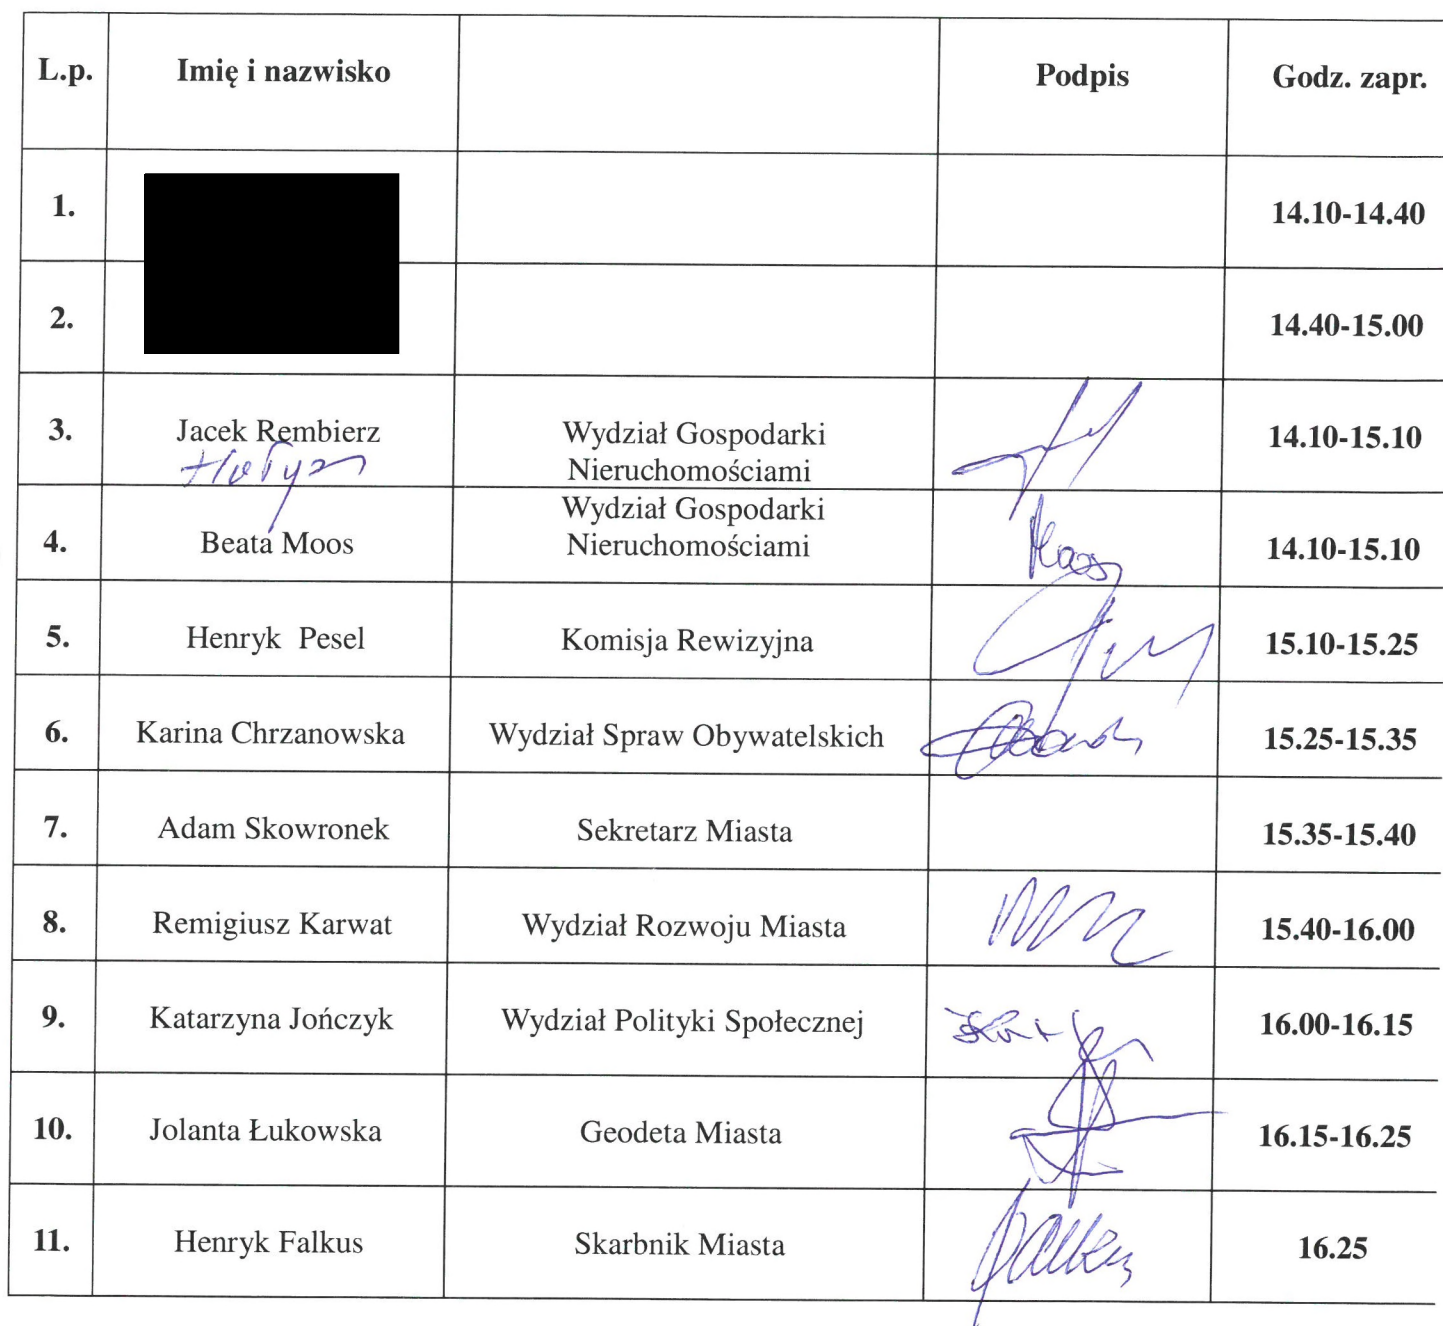 L.p. Imię i nazwisko Podpis Godz. zapr.
1. 14.10-14.40
2. 14.40-15.00
3. Jacek Rembierz Wydział Gospodarki 14.10-15.10
Nieruchomościami
Wydział Gospodarki
4. Beata Moos Nieruchomościami 14.10-15.10
5. Henryk Pesel Komisja Rewizyjna 15.10-15.25
6. Karina Chrzanowska Wydział Spraw Obywatelskich 15.25-15.35
7. Adam Skowronek Sekretarz Miasta 15.35-15.40
8. Remigiusz Karwat Wydział Rozwoju Miasta 15.40-16.00
9. Katarzyna Jończyk Wydział Polityki Społecznej 16.00-16.15
10. Jolanta Łukowska Geodeta Miasta 16.15-16.25
11. Henryk Falkus Skarbnik Miasta 16.25